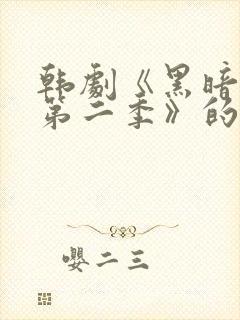 韩劇《黑暗
第二季》的
嬰二三